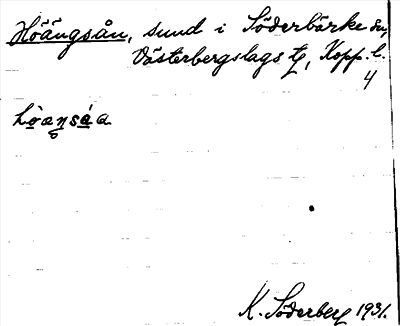 Höängsån, sund i Söderbärke sn,
Västerbergslags tg, Kopp. l.
4
hò̤a̤ŋsá̤a
K. Söderberg 1931.